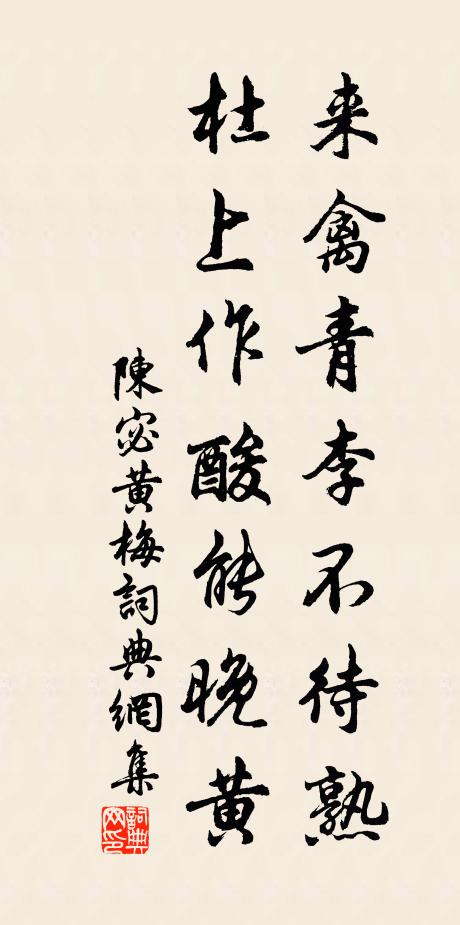 来禽青李不待熟
杜上作酸能晚黄
陳宓黄梅詞典網集
詞典網印